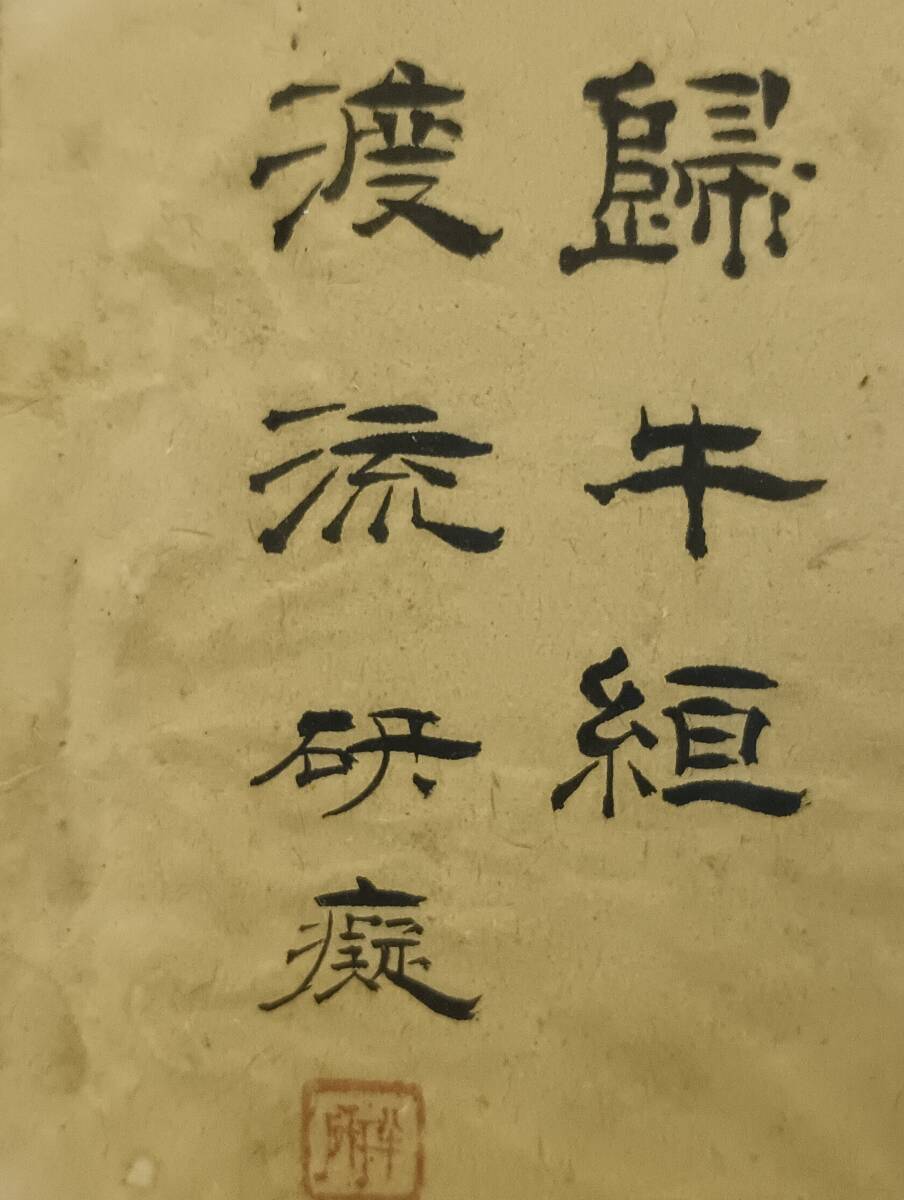 歸牛絙
渡流研癡